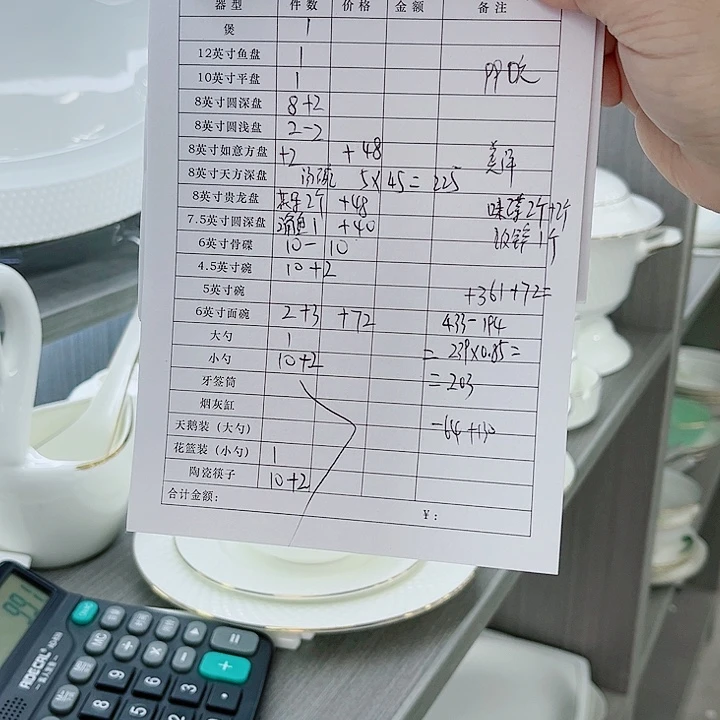 器型 件数 价格 金额 备注
煲 1
12英寸鱼盘 1
10英寸平盘 1
8英寸圆深盘 8+2
8英寸圆浅盘 2-2
8英寸如意方盘 +2 +48
8英寸天方深盘 汤碗 5×45=225
8英寸贵龙盘 2个 +48 味碟2个+2个
7.5英寸圆深盘 1 +40 1个
6英寸骨碟 10- 10
4.5英寸碗 10+2
5英寸碗 +361+72=
6英寸面碗 2+3 +72 433-194
大勺 1 = 239×0.85=
小勺 10+2 =203
牙签筒
烟灰缸
天鹅装（大勺） -64+130
花篮装（小勺） 1
陶瓷筷子 10+2
合计金额： ¥：
991
AC
M+
×
-
+
=
9
8
6
5
3
2